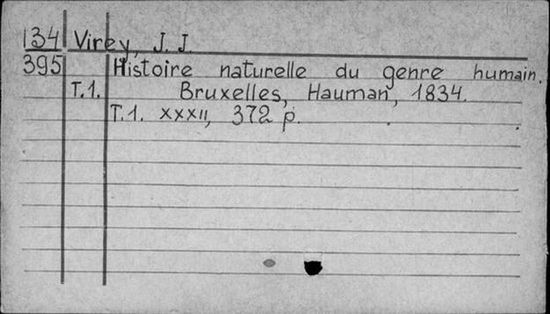 134 Virey, J. J.
395 Histoire naturelle du genre humain.
T.1. Bruxelles, Hauman, 1834.
T.1. XXXII, 372 p.